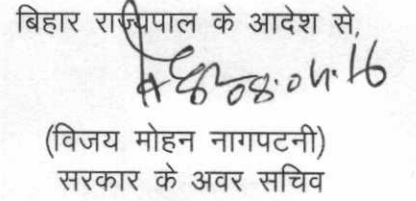 बिहार राज्यपाल के आदेश से,
08.04.16
(विजय मोहन नागपटनी)
सरकार के अवर सचिव